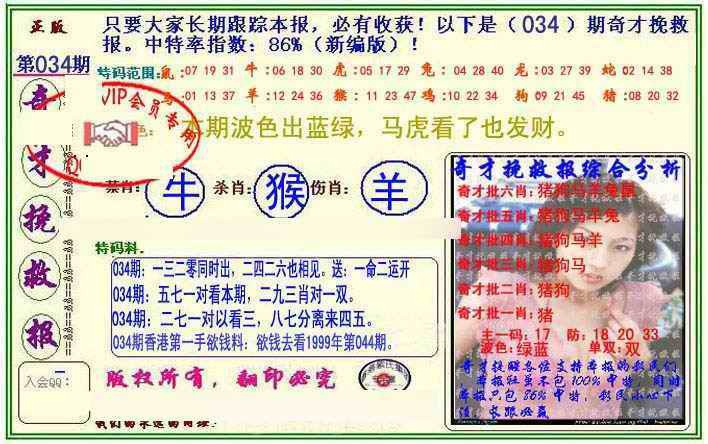 正版
只要大家长期跟踪本报，必有收获！以下是（034）期奇才挽救
报。中特率指数：86%（新编版）！
第034期
特码范围：鼠:07 19 31 牛:06 18 30 虎:05 17 29 兔:04 28 40 龙:03 27 39 蛇:02 14 38
01 13 37 羊:12 24 36 猴:11 23 47 鸡:10 22 34 狗09 21 45 猪:08 20 32
VIP会员专用
本期波色出蓝绿，马虎看了也发财。
奇才挽救报
禁肖：牛 杀肖：猴 伤肖：羊
特码料.
034期：一三二零同时出，二四二六也相见。送：一命二运开
034期：五七一对看本期，二九三肖对一双。
034期：二七一对以看三，八七分离来四五。
034期香港第一手欲钱料：欲钱去看1999年第044期。
入会QQ：
版权所有，翻印必究
奇才挽救报综合分析
奇才批六肖：猪狗马羊兔鼠
奇才批五肖：猪狗马羊兔
奇才批四肖：猪狗马羊
奇才批三肖：猪狗马
奇才批二肖：猪狗
奇才批一肖：猪
主一码：17 防：18 20 33
波色：绿蓝 单双：双